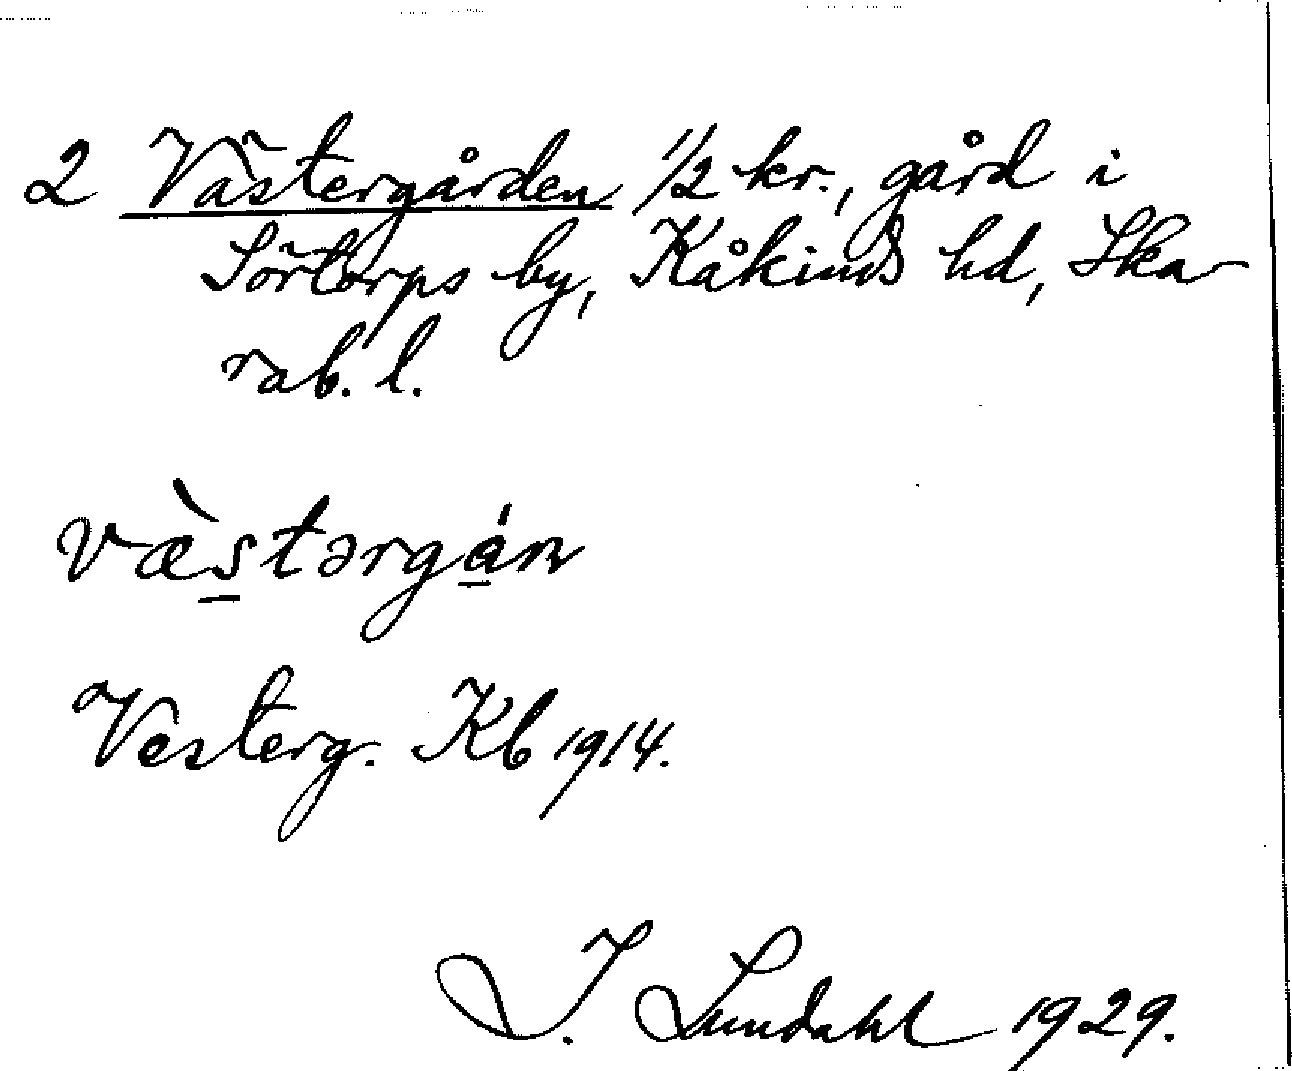 2 Västergården 1/2 kr., gård i
Sörtorps by, Kåkinds hd, Ska-
rab. l.
væ̀stərgán
Vesterg. Kb 1914.
I. Lundahl 1929.